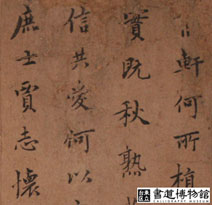 軒何所植
實既秋熟
信共愛何以
庶士賈志懷
書道博物館
CALLIGRAPHY MUSEUM